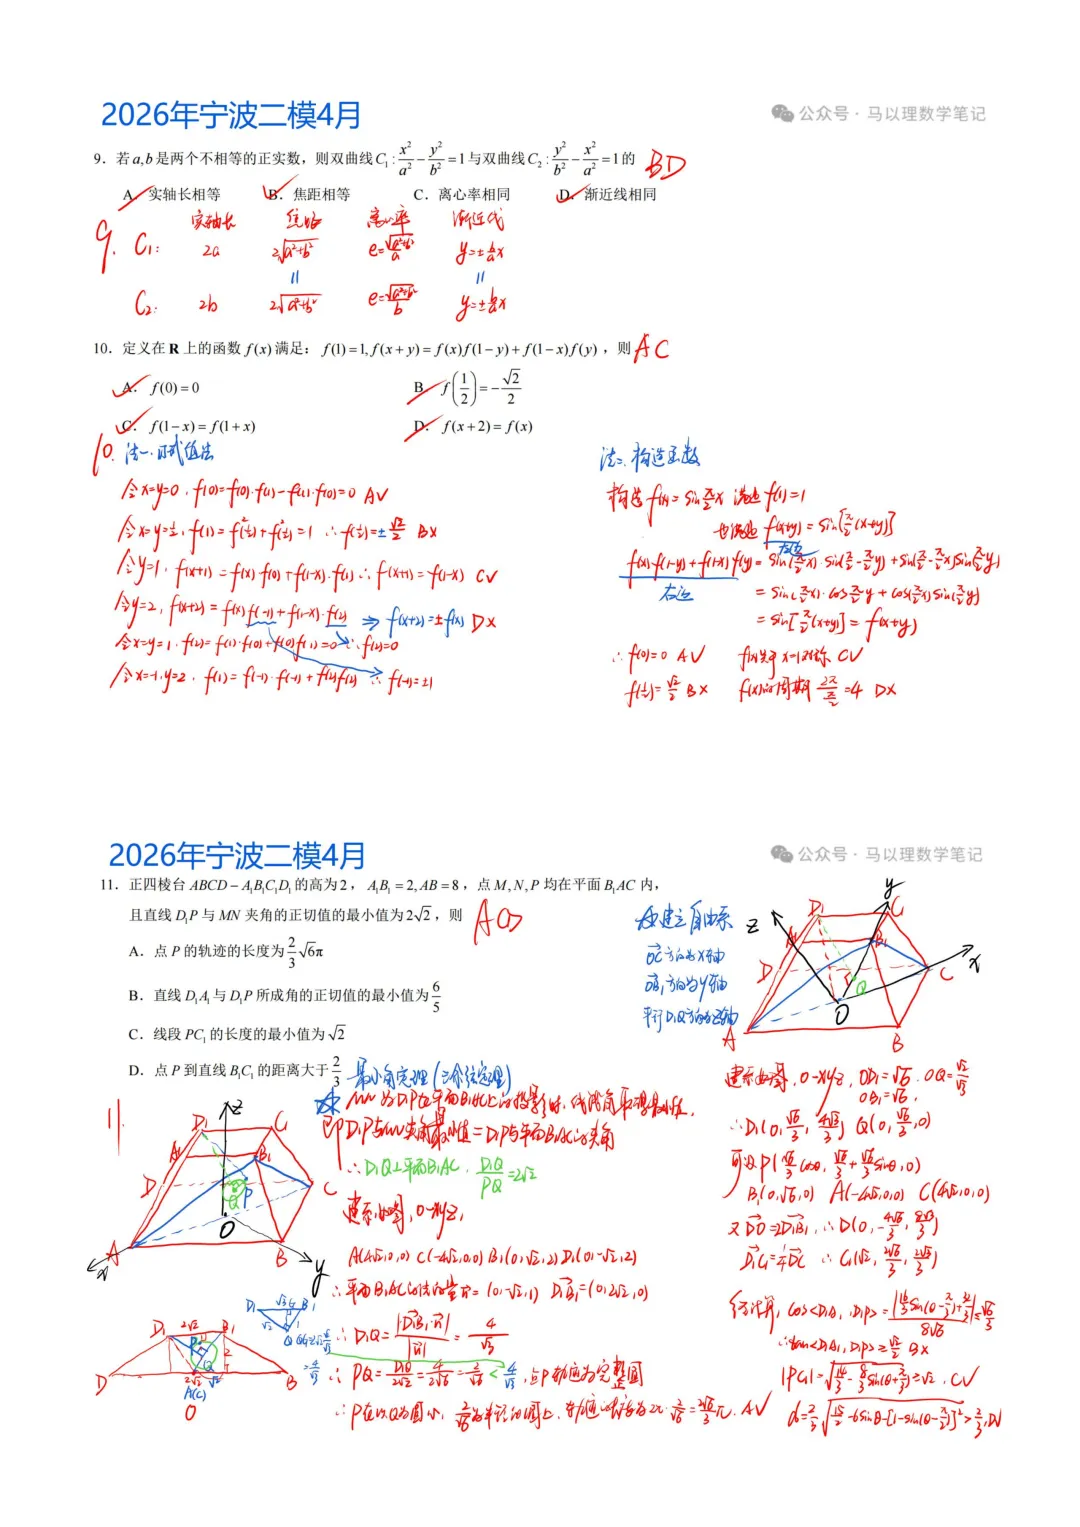 2026年宁波二模4月
公众号 · 马以理数学笔记
9. 若a,b是两个不相等的正实数，则双曲线C₁: x²/a² − y²/b² =1与双曲线C₂: y²/b² − x²/a² =1的 BD
A. 实轴长相等 B. 焦距相等 C. 离心率相同 D. 渐近线相同
实轴长 焦距 离心率 渐近线
9. C₁: 2a 2√(a²+b²) e=√(a²+b²)/a y=±b/a x
C₂: 2b 2√(a²+b²) e=√(a²+b²)/b y=±b/a x
10. 定义在 R 上的函数 f(x) 满足：f(1)=1, f(x+y)=f(x)f(1−y)+f(1−x)f(y)，则 AC
A. f(0)=0 B. f(1/2)=−√2/2
C. f(1−x)=f(1+x) D. f(x+2)=f(x)
10. 法一.
令x=y=0, f(0)=f(0)·f(1)−f(1)·f(0)=0 A√
令x=y=½, f(1)=f²(½)+f²(½)=1 ∴f(½)=±√2/2 B×
令y=1, f(x+1)=f(x)f(0)+f(1-x)·f(1) ∴f(x+1)=f(1-x) C√
令y=2, f(x+2)=f(x)f(-1)+f(1-x)·f(2) ⇒ f(x+2)=±f(x) D×
令x=y=1, f(2)=f(1)·f(0)+f(0)f(1)=0 ∴f(2)=0
令x=-1,y=2, f(1)=f(-1)·f(-1)+f(2)f(2) ∴f(-1)=±1
法二. 构造函数
构造f(x)=sin π/2 x 满足f(1)=1
也满足 f(x+y)=sin[π/2(x+y)]
左边
f(x)·f(1-y)+f(1-x)f(y)=sin(π/2 x)·sin(π/2−π/2 y)+sin(π/2−π/2 x)sin(π/2 y)
右边 =sin(π/2 x)·cos π/2 y+cos(π/2 x)sin(π/2 y)
=sin[π/2(x+y)]=f(x+y)
∴f(0)=0 A√ f(x)关于x=1对称 C√
f(½)=√2/2 B× f(x)的周期 2π/(π/2)=4 D×
2026年宁波二模4月
公众号 · 马以理数学笔记
11. 正四棱台 ABCD−A₁B₁C₁D₁ 的高为2，A₁B₁=2, AB=8，点M,N,P 均在平面B₁AC 内，
且直线D₁P 与MN 夹角的正切值的最小值为2√2，则 ACD
A. 点 P 的轨迹的长度为 2/3 √6π
B. 直线 D₁A₁ 与 D₁P 所成角的正切值的最小值为 6/5
C. 线段 PC₁ 的长度的最小值为 √2
D. 点 P 到直线 B₁C₁ 的距离大于 2/3
建立自由系
OC方向为x轴
OB₁方向为y轴
平行D₁Q方向为z轴
D₁ C₁ y z A₁ B₁ D C x Q O A B
11. 最小角定理(三余弦定理)
MN为D₁P在平面B₁AC上的投影时，线线角取得最小值.
即D₁P与MN夹角最小值=D₁P与平面B₁AC的夹角
∴D₁Q⊥平面B₁AC. D₁Q/PQ=2√2
建系如图, O-xyz,
A(4√2,0,0) C(-4√2,0,0) B₁(0,√2,2) D₁(0,-√2,2)
∴平面B₁AC的法向量n=(0,-√2,1) D₁B₁=(0,2√2,0)
∴D₁Q=|D₁B₁·n|/|n|=4/√3
∴PQ=D₁Q/2√2=4/2√6=2/√6<4/√3, 点P轨迹为完整圆
∴P在以Q为圆心, 2/√6为半径的圆上, 轨迹的长度为2π·2/√6=2√6/3π. A√
z D₁ C₁ A₁ B₁ D P C Q O A B x y
D₁ 2√2 B₁ P Q 2 D 2√2 √2 A(C) B O
建系如图, O-xyz, OD₁=√6. OQ=√2/√3
OB₁=√6,
∴D₁(0,√6/3,4√3/3) Q(0,√6/3,0)
可设P(√6/3cosθ,√6/3+√6/3sinθ,0)
B₁(0,√6,0) A(-4√2,0,0) C(4√2,0,0)
又DO=2D₁B₁, ∴D(0,-4√6/3,8√3/3)
D₁C₁=¼DC ∴C₁(√2,2√6/3,2√3/3)
∴tan<D₁A₁,D₁P>≥√2/2 B×
|PC₁|=√(14/3−8/3sin(θ+π/3))≥√2. C√